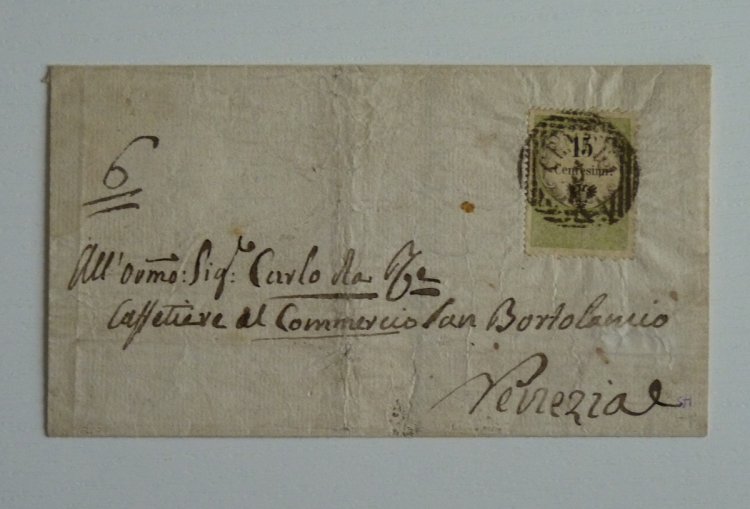 6
15
Centesimi
All'ornmo: Sigr: Carlo
Caffetiere al Commercio San Bortolamio
Venezia
SH